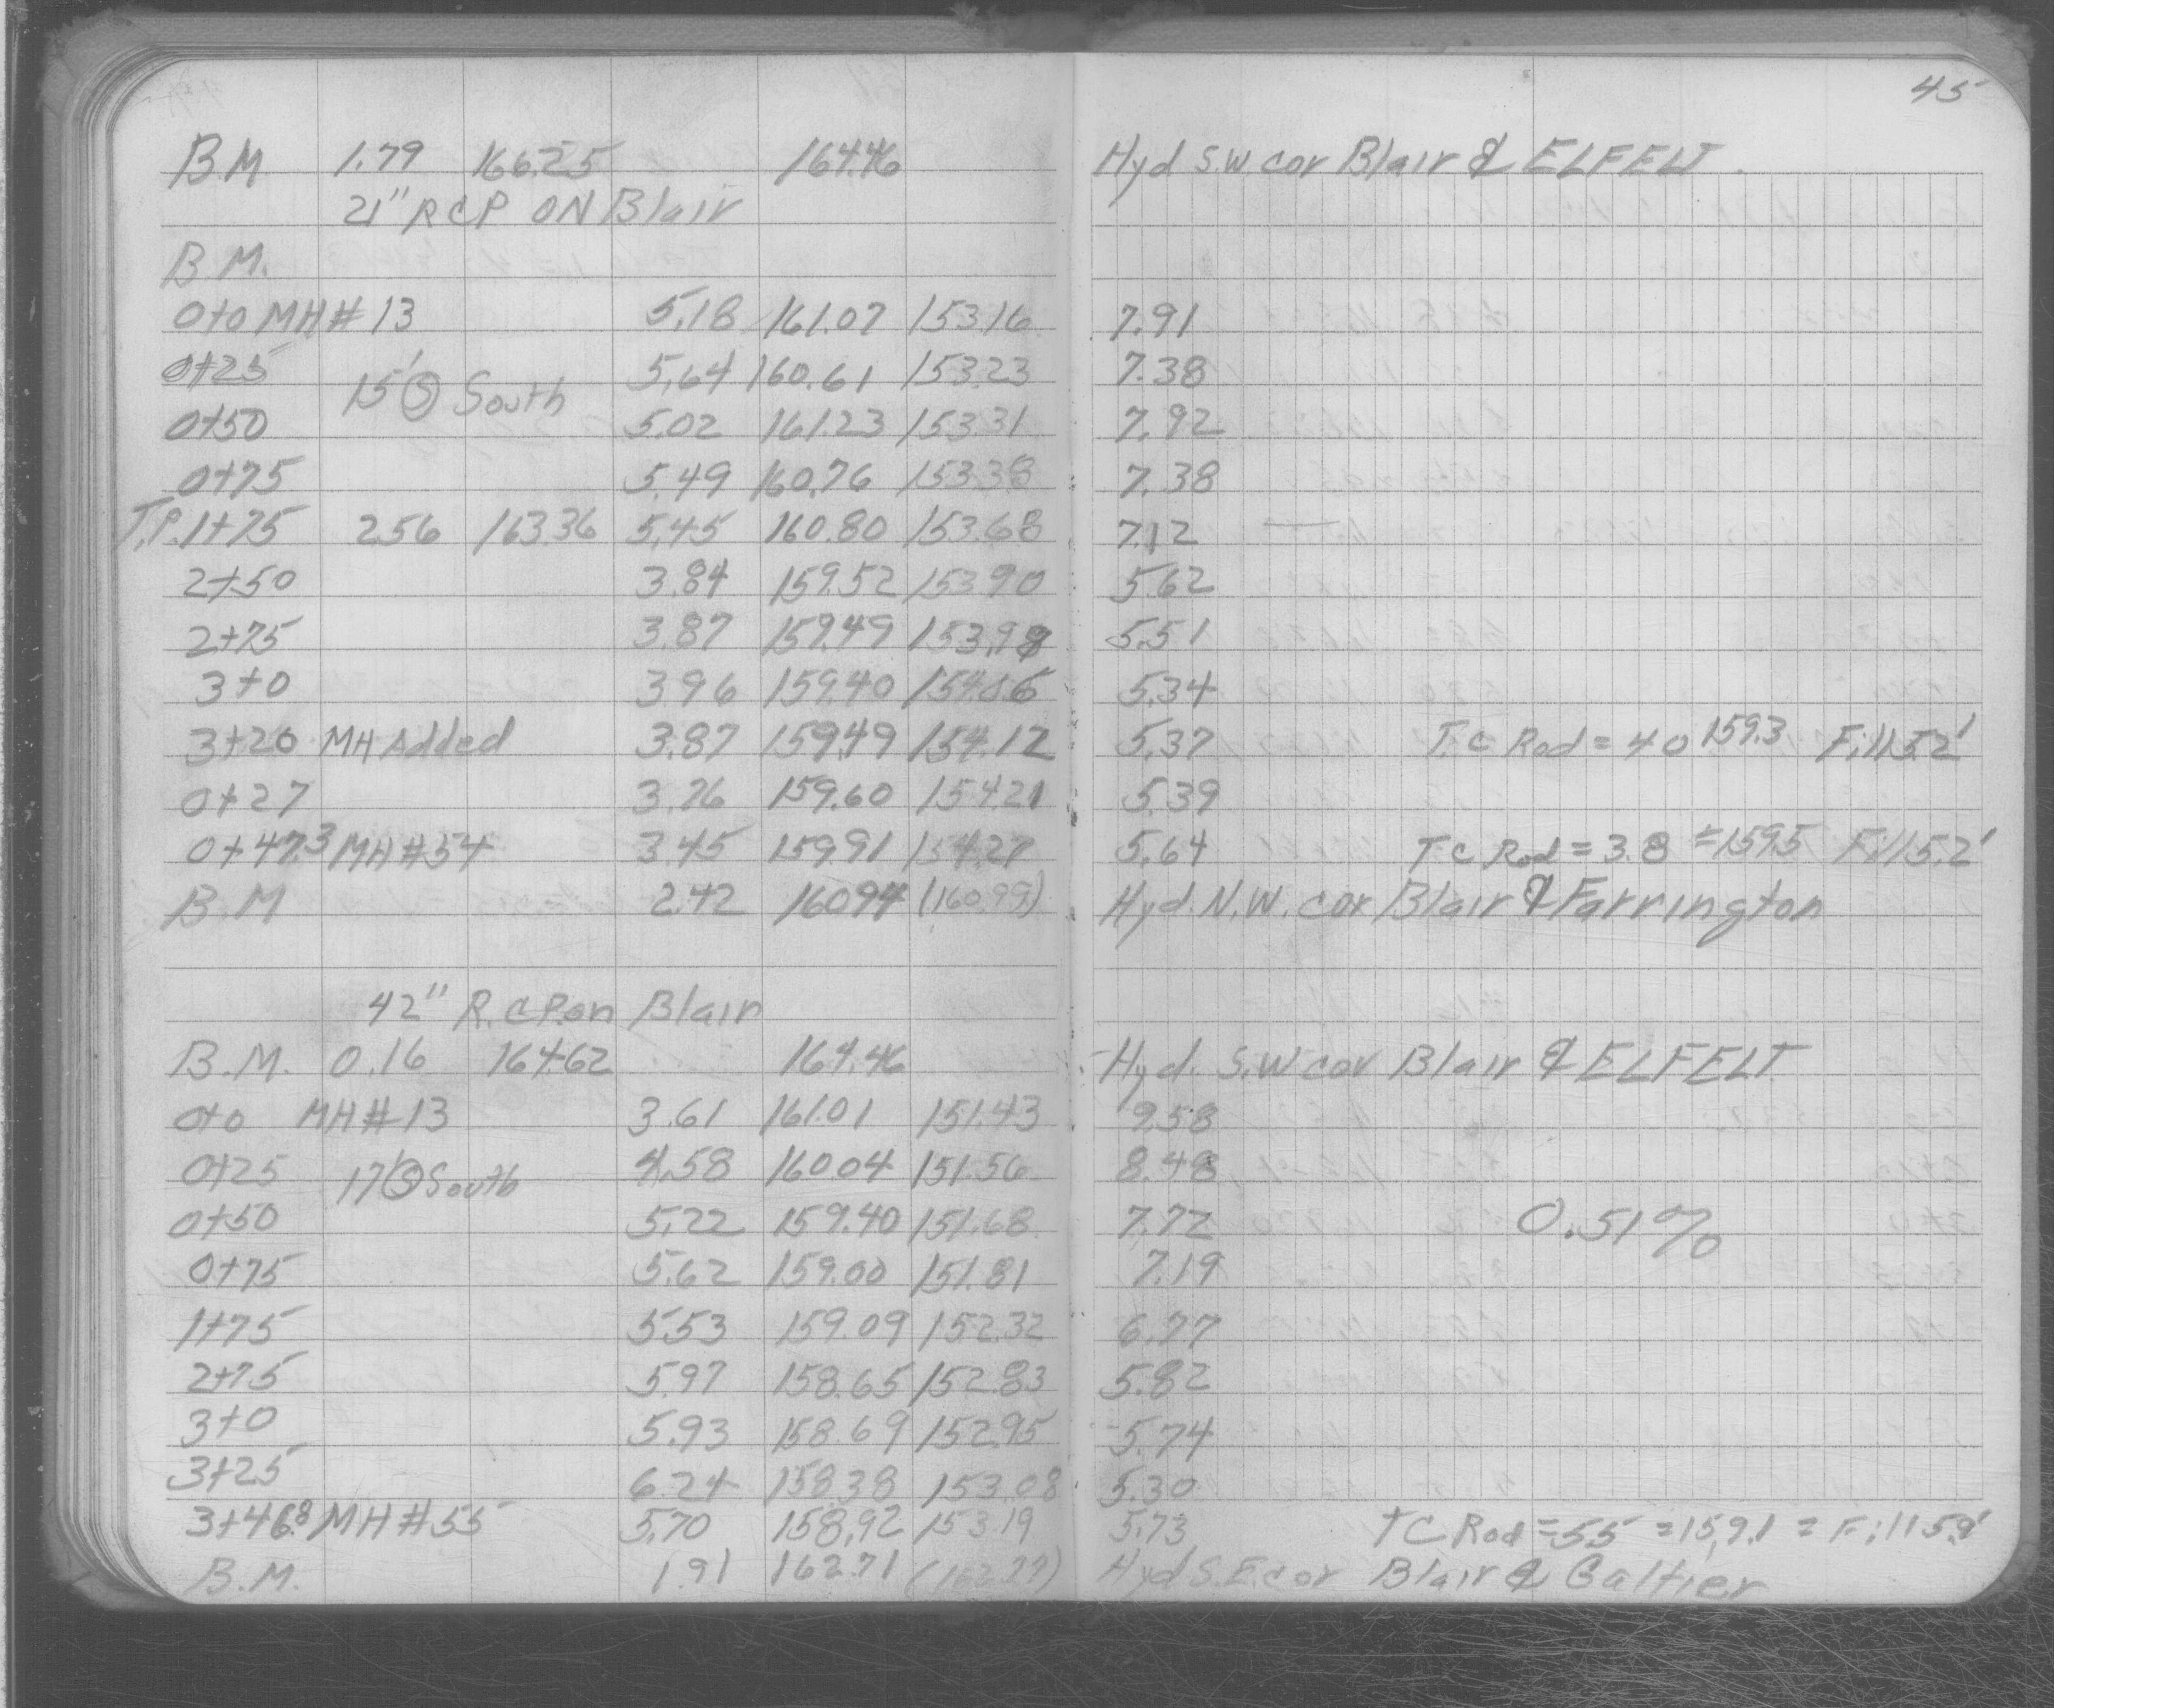 45
B.M. 1.79 166.25 164.46 Hyd S.W. cor Blair & ELFELT.
21" RCP ON Blair
B.M.
0+0 MH# 13 5.18 161.07 153.16 7.91
0+25 5.64 160.61 153.23 7.38
15' Ⓢ South
0+50 5.02 161.23 153.31 7.92
0+75 5.49 160.76 153.38 7.38
T.P. 1+75 2.56 163.36 5.45 160.80 153.68 7.12
2+50 3.84 159.52 153.90 5.62
2+75 3.87 159.49 153.98 5.51
3+0 3.96 159.40 154.06 5.34
3+20 MH Added 3.87 159.49 154.12 5.37 T.C Rod = 4.0 159.3 Fill 5.2'
0+27 3.76 159.60 154.21 5.39
0+47.3 MH#54 3.45 159.91 154.27 5.64 TC Rod = 3.8 = 159.5 Fill 5.2'
B.M 2.42 160.94 (160.99) Hyd. N.W. cor Blair & Farrington
42" R.C.P. on Blair
B.M. 0.16 164.62 164.46 Hyd. S.W cor Blair & ELFELT
0+0 MH#13 3.61 161.01 151.43 9.58
0+25 4.58 160.04 151.56 8.48
17' Ⓢ South
0+50 5.22 159.40 151.68 7.72 0.51%
0+75 5.62 159.00 151.81 7.19
1+75 5.53 159.09 152.32 6.77
2+75 5.97 158.65 152.83 5.82
3+0 5.93 158.69 152.95 5.74
3+25 6.24 158.38 153.08 5.30
3+46.8 MH#55 5.70 158.92 153.19 5.73 TC Rod = 5.5 = 159.1 = Fill 5.9'
B.M. 1.91 162.71 Hyd S.E. cor Blair & Galtier